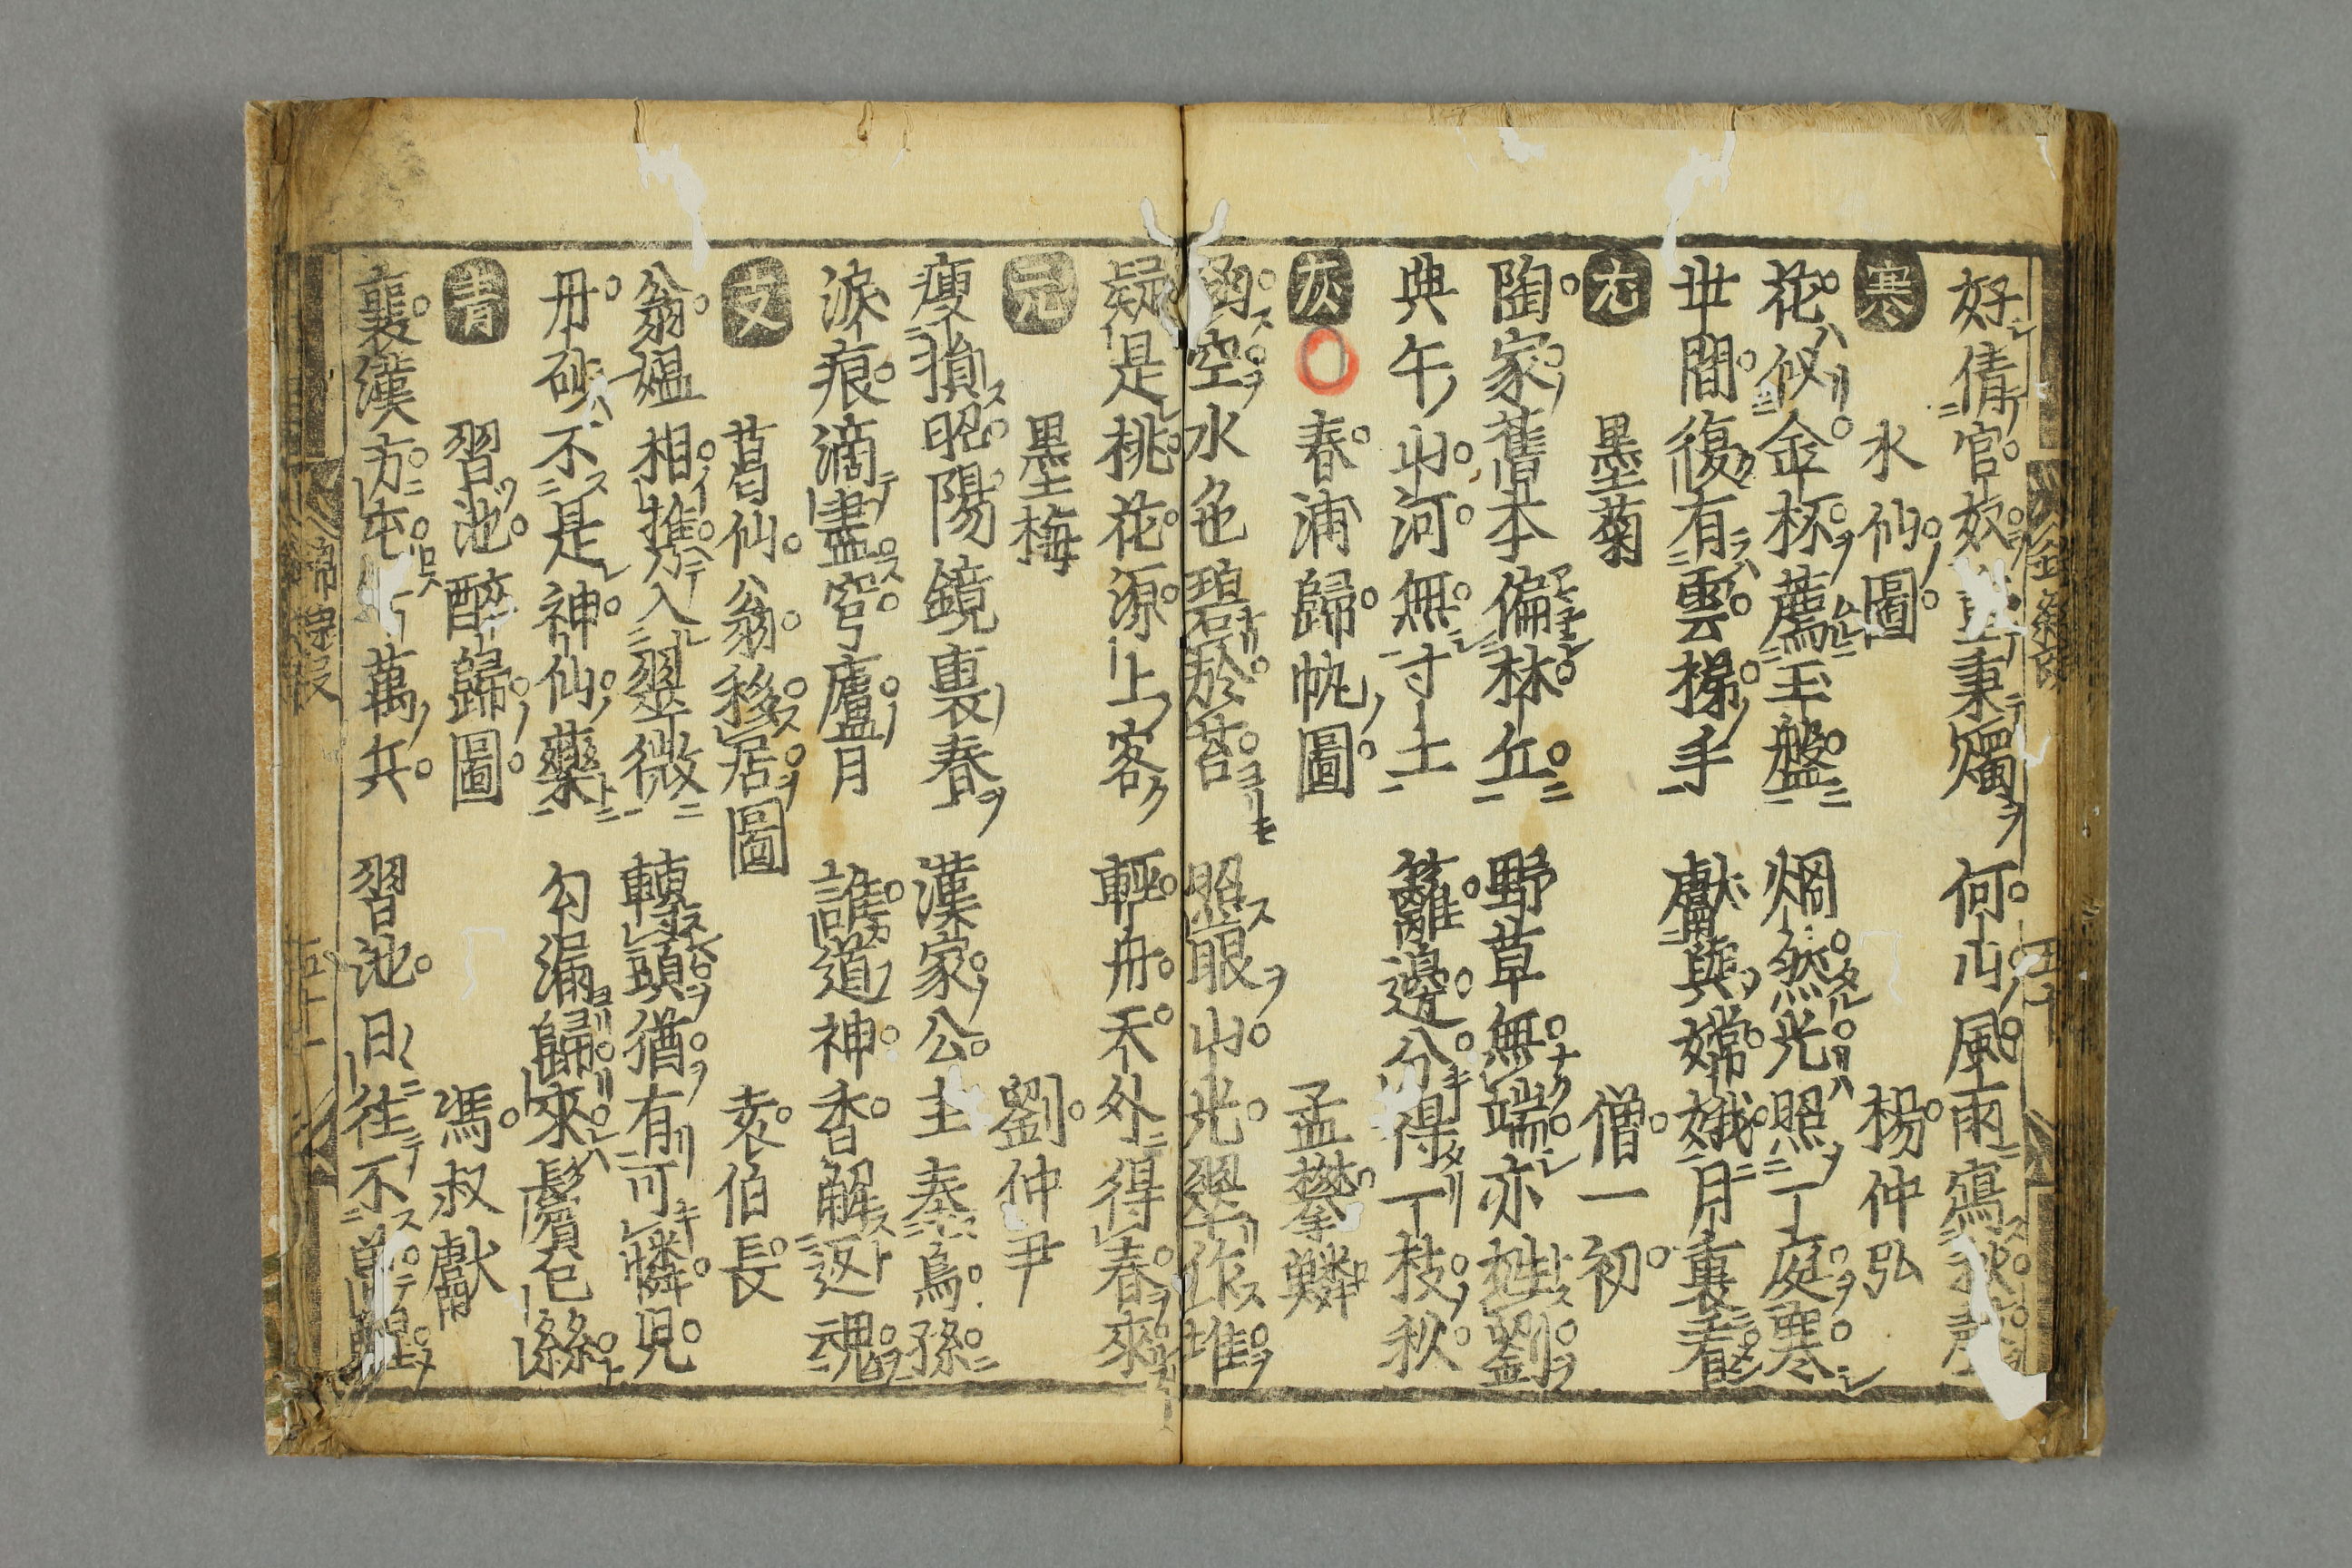 好倩官奴秉燭 何山風雨寫秋
寒 水仙圖 楊仲弘
花似金杯薦玉盤 烱然光照一庭寒
世間復有雲梯手 獻與嫦娥月裏看
尤 墨菊 僧一初
陶家舊本偏林丘 野草無端亦姓劉
典午山河無寸土 籬邊分得一枝秋
灰 春浦歸帆圖 孟攀鱗
空水色碧於苔 照眼山光翠作堆
疑是桃花源上客 輕舟天外得春來
元 墨梅 劉仲尹
瘦損昭陽鏡裏春 漢家公主奉烏孫
淚痕滴盡穹廬月 誰道神香解返魂
文 葛仙翁移居圖 袁伯長
翁媼相携入翠微 轉頭猶有可憐兒
丹砂不是神仙藥 勾漏歸來鬢已絲
青 習池醉歸圖 馮叔獻
襄漢方屯萬兵 習池日往不曾醒